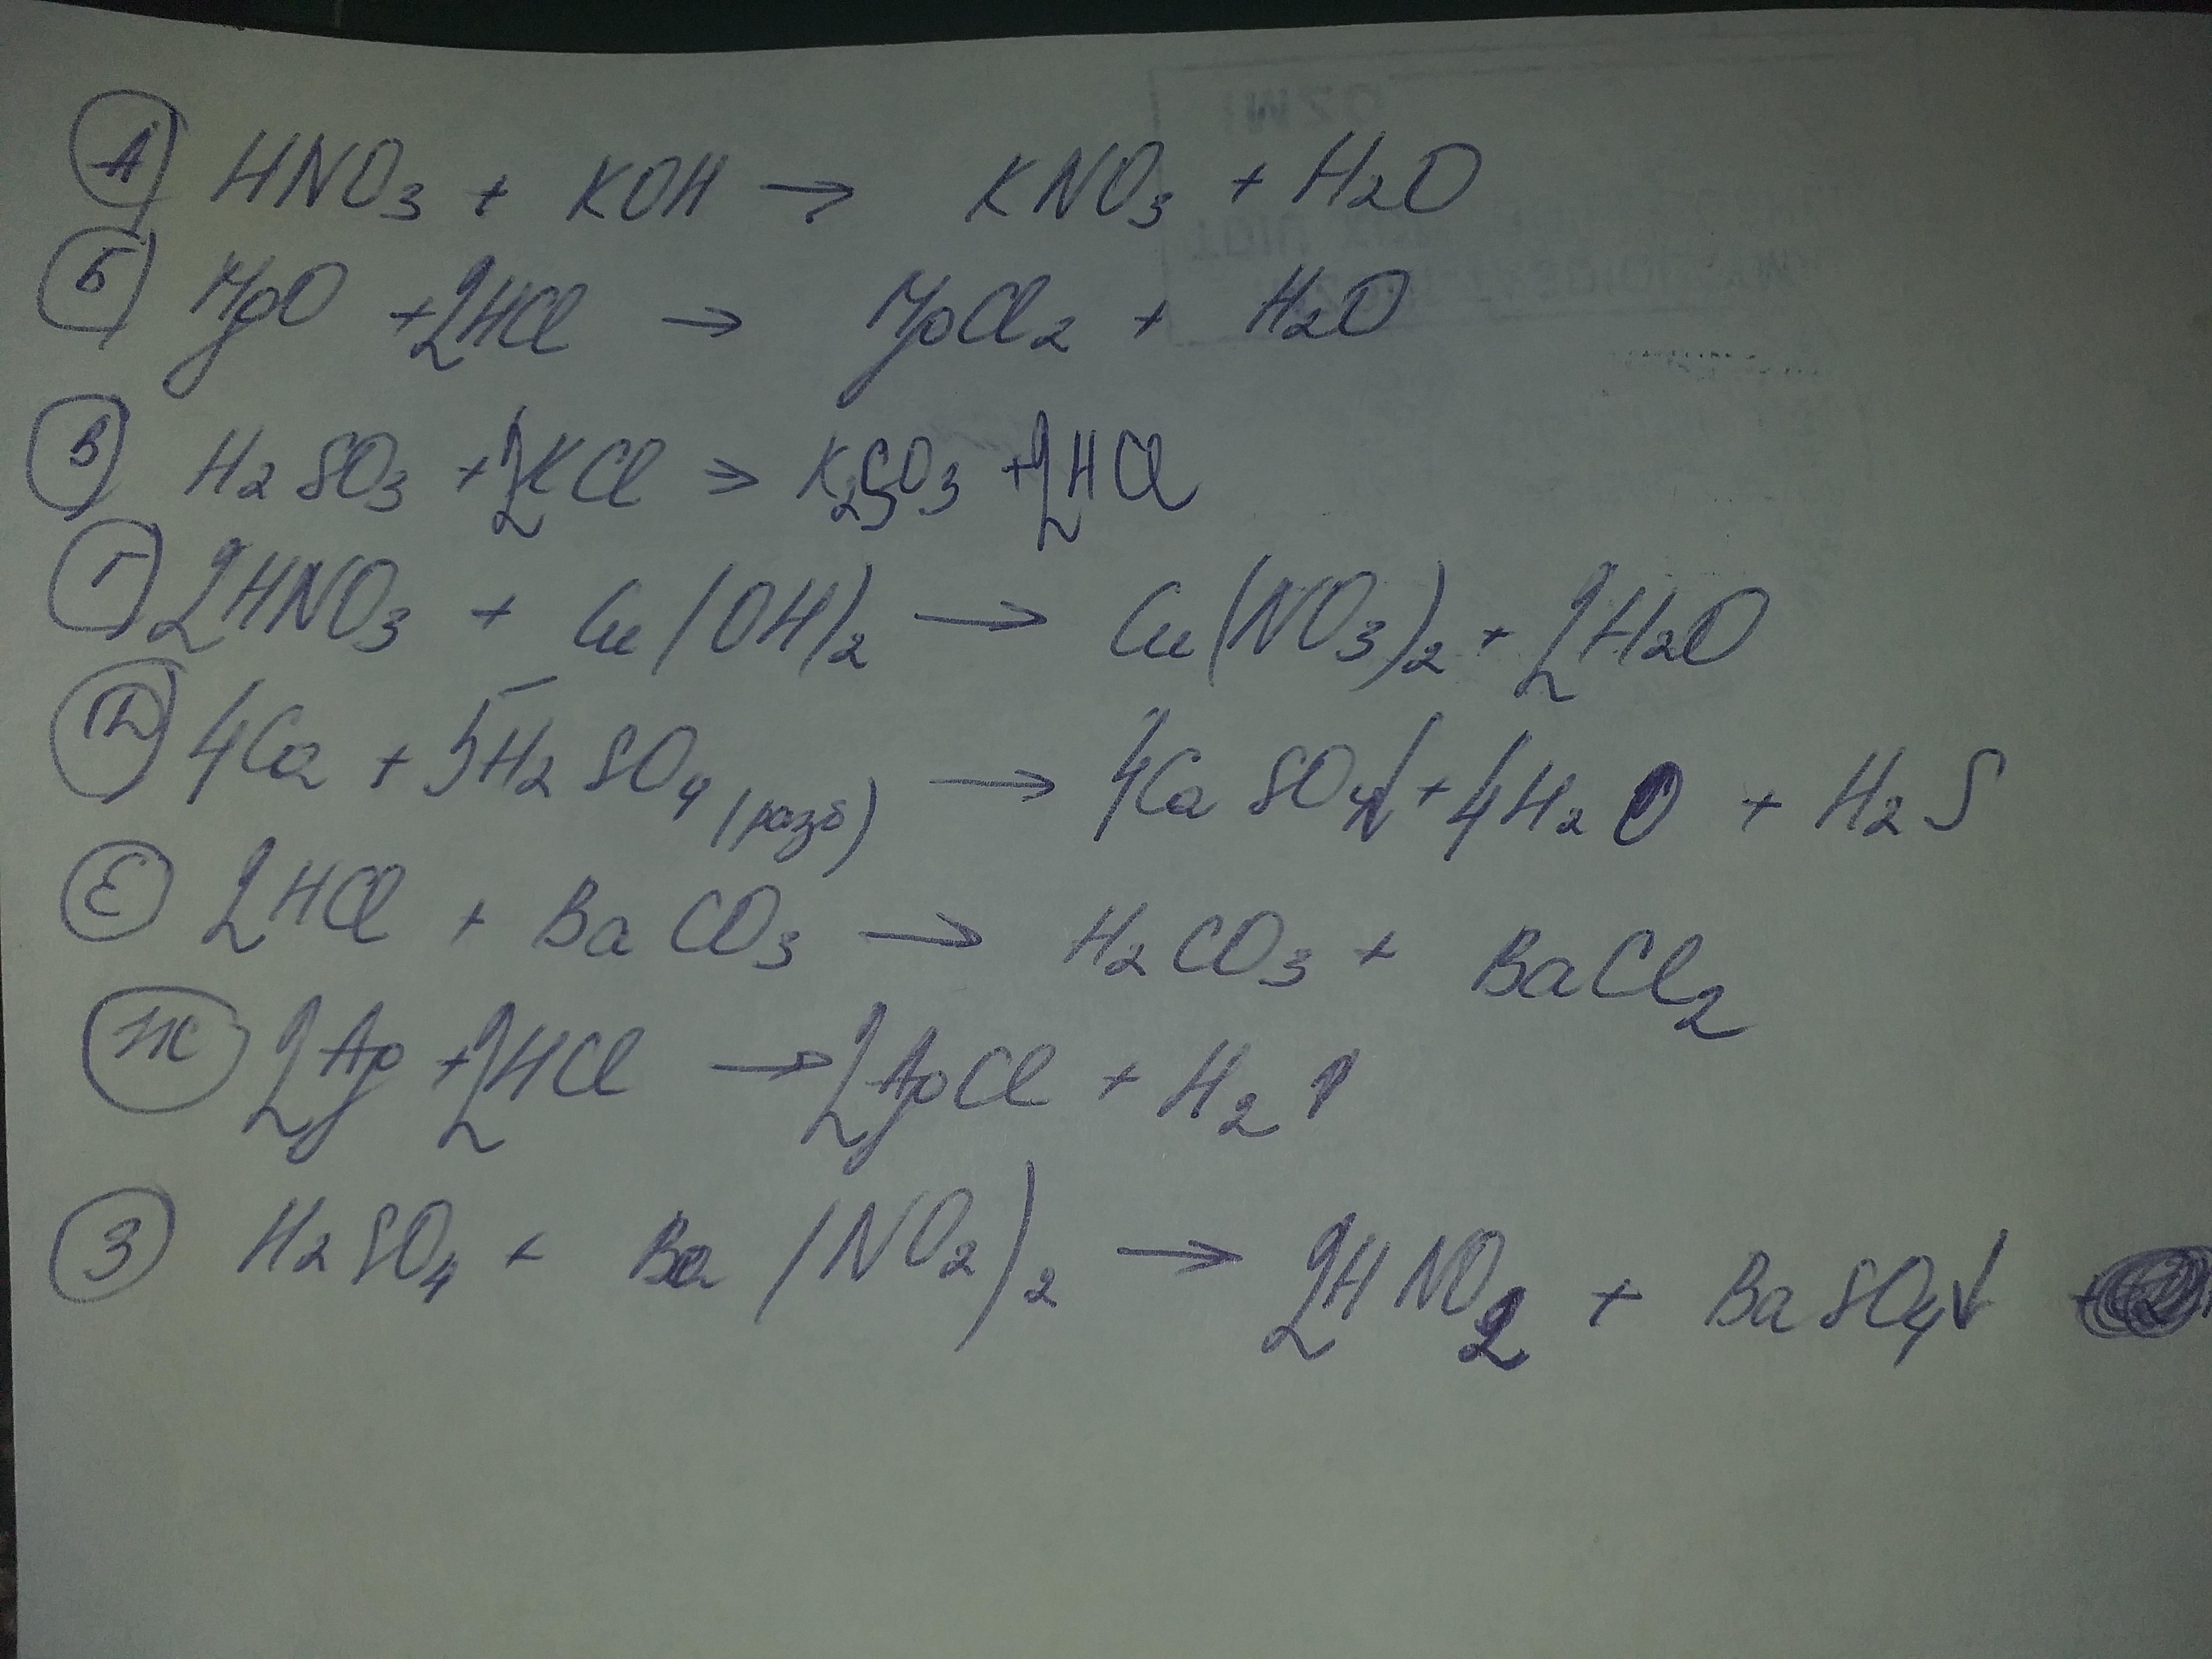 А HNO3 + KOH → KNO3 + H2O
Б MgO + 2HCl → MgCl2 + H2O
В H2SO3 + 2KCl → K2SO3 + 2HCl
Г 2HNO3 + Cu(OH)2 → Cu(NO3)2 + 2H2O
Д 4Ca + 5H2SO4 (разб) → 4CaSO4↓ + 4H2O + H2S
Е 2HCl + BaCO3 → H2CO3 + BaCl2
Ж 2Ag + 2HCl → 2AgCl + H2↑
З H2SO4 + Ba(NO2)2 → 2HNO2 + BaSO4↓